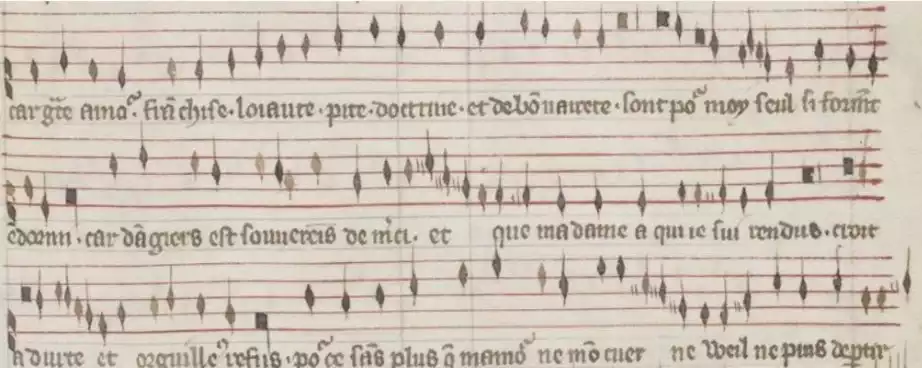 car gr̃e amoᷣ. frãchise. loiaute. pite. doctrine. et debõnairete. sont poᷣ moy seul si formẽt
ẽdormi. car dãgiers est souuereĩs de m̾ci. et que ma dame a qui ie sui rendus. croit
a durte et orguilleꝰ refus. poᷣ ce sãs plus q̃ mamoᷣ ne mõ cuer ne weil ne puis dep̃tir